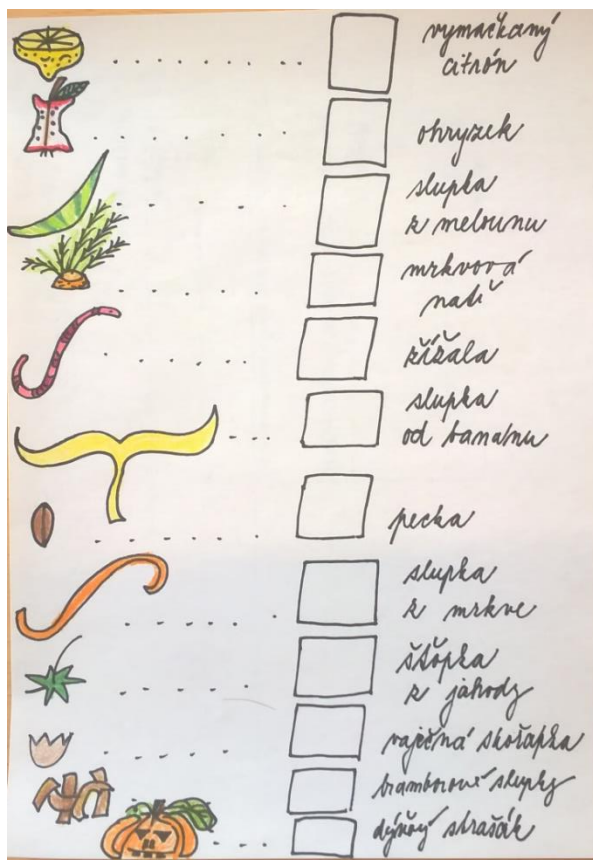 vymačkaný
citrón
ohryzek
slupka
z melounu
mrkvová
nať
žížala
slupka
od banánu
pecka
slupka
z mrkve
štopka
z jahody
vaječná skořápka
bramborové slupky
dýňový strašák